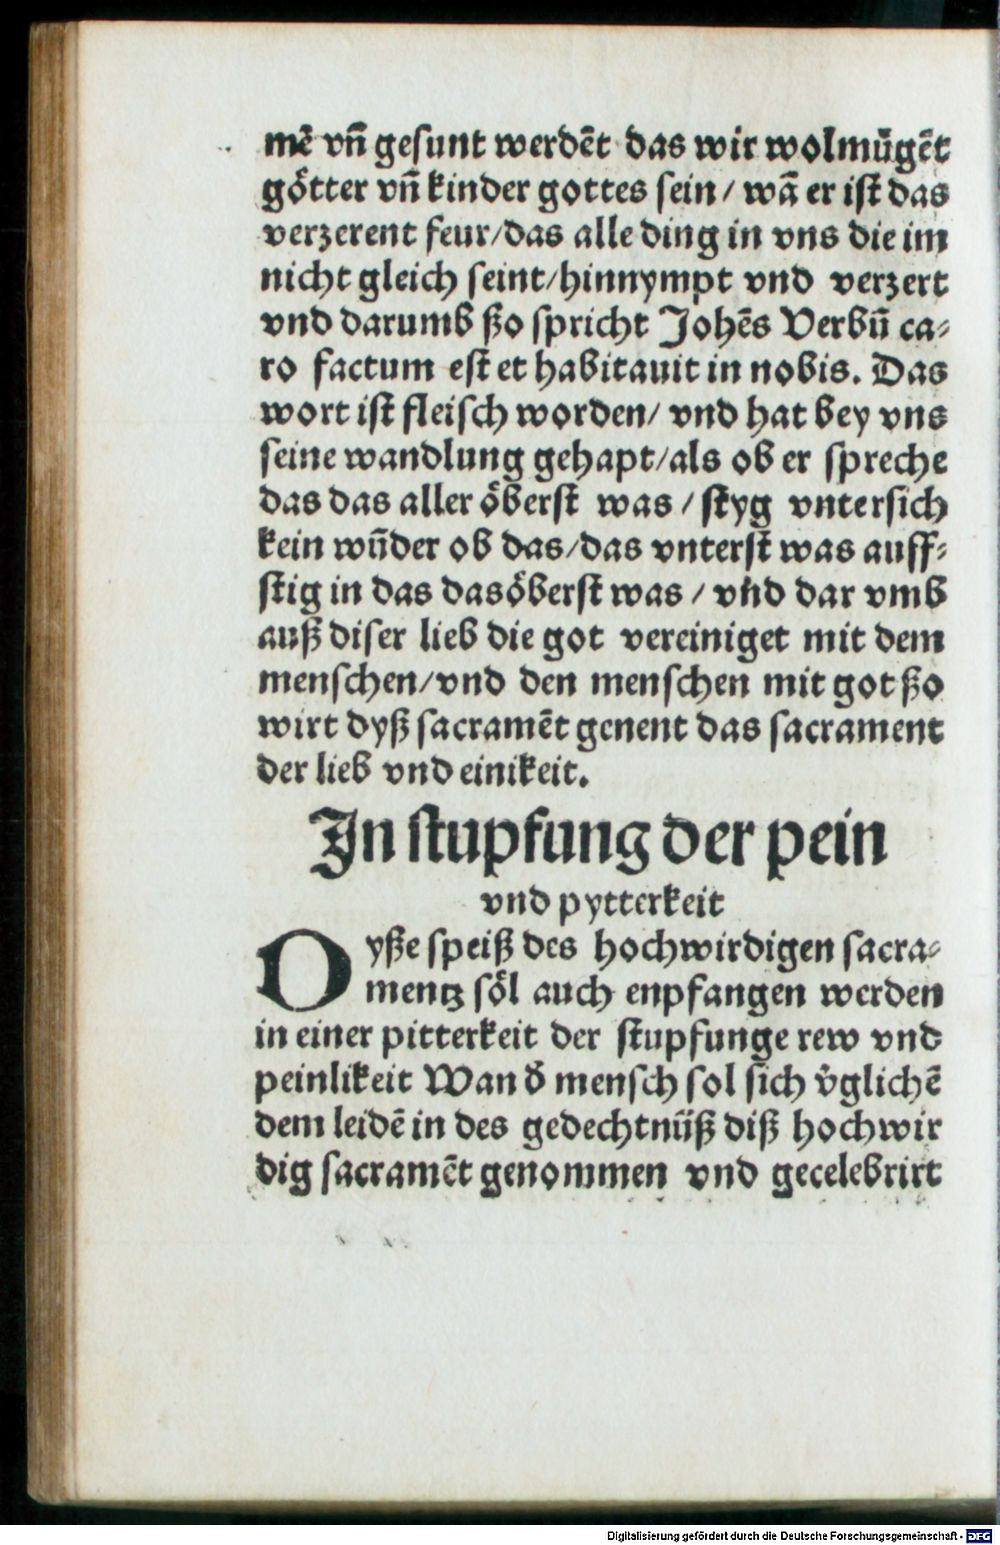 mē vn̄ gesunt werdēt das wir wolmu᷑gēt
götter vn̄ kinder gottes sein / wā er ist das
verzerent feur/das alle ding in vns die im
nicht gleich seint/hinnympt vnd verzert
vnd darumb ßo spricht Johēs Verbū ca⸗
ro factum est et habitauit in nobis. Das
wort ist fleisch worden/ vnd hat bey vns
seine wandlung gehapt/als ob er spreche
das das aller öberst was / styg vntersich
kein wūder ob das/das vnterst was auff⸗
stig in das das öberst was / vnd dar vmb
auß diser lieb die got vereiniget mit dem
menschen/vnd den menschen mit got ßo
wirt dyß sacramēt genent das sacrament
der lieb vnd einikeit.
In stupfung der pein
vnd pytterkeit
Dyße speiß des hochwirdigen sacra⸗
mentz söl auch enpfangen werden
in einer pitterkeit der stupfunge rew vnd
peinlikeit Wan d᷑ mensch sol sich v᷑glichē
dem leidē in des gedechtnüß diß hochwir
dig sacramēt genommen vnd gecelebrirt
Digitalisierung gefördert durch die Deutsche Forschungsgemeinschaft - DFG